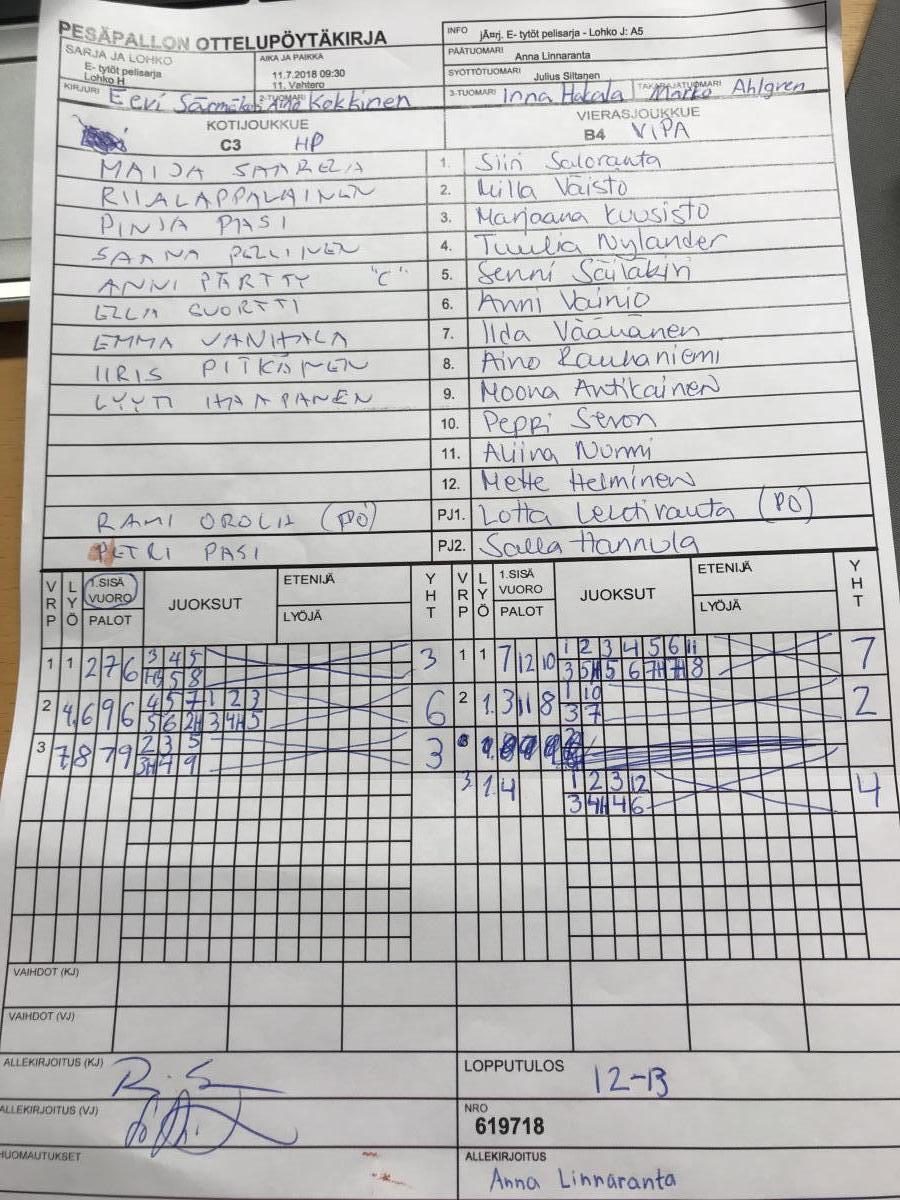 PESÄPALLON OTTELUPÖYTÄKIRJA
INFO jÃ¤rj. E- tytöt pelisarja - Lohko J: A5
SARJA JA LOHKO
E- tytöt pelisarja
Lohko H
AIKA JA PAIKKA
11.7.2018 09:30
11. Vahtero
PÄÄTUOMARI Anna Linnaranta
SYÖTTÖTUOMARI Julius Siltanen
KIRJURI Eevi 2-TUOMARI Aino Kokkinen
3-TUOMARI Inna Hakala TAKARAJATUOMARI Marko Ahlgren
KOTIJOUKKUE
C3 HP
VIERASJOUKKUE
B4 ViPA
MAIJA SAARELA 1. Siiri Saloranta
RIIA LAPPALAINEN 2. Milla Väistö
PINJA PASI 3. Marjaana Kuusisto
SAANA PELLINEN 4. Tuulia Nylander
ANNI PÄRTTY "C" 5. Senni Säiläkivi
ELLA SUORTTI 6. Anni Vainio
EMMA VANHALA 7. Iida Väänänen
IIRIS PITKÄNEN 8. Aino Rauhaniemi
LYYTI HAAPANEN 9. Moona Antikainen
10. Peppi Sevon
11. Aliina Nurmi
12. Mette Helminen
RAMI OROLA (PO) PJ1. Lotta Lehtiranta (PO)
PETRI PASI PJ2. Salla Hannula
VRP LYÖ 1.SISÄ VUORO PALOT JUOKSUT ETENIJÄ LYÖJÄ YHT
VRP LYÖ 1.SISÄ VUORO PALOT JUOKSUT ETENIJÄ LYÖJÄ YHT
1 1 2 7 6 3 4 5 3 1 1 7 12 10 1 2 3 4 5 6 11 7
5 8 3 5H 5 6 7H 7H 8
2 4. 6 9 6 4 5 7 1 2 3 6 2 1. 3 11 8 1 10 2
5 6 2H 3 4H 5 3 7
3 7. 8 7 9 2 3 5 3
3H 7 9
3. 1. 4 1 2 3 12 4
3 4H 4 6
VAIHDOT (KJ)
VAIHDOT (VJ)
ALLEKIRJOITUS (KJ)
LOPPUTULOS 12-13
ALLEKIRJOITUS (VJ)
NRO
619718
HUOMAUTUKSET
ALLEKIRJOITUS
Anna Linnaranta